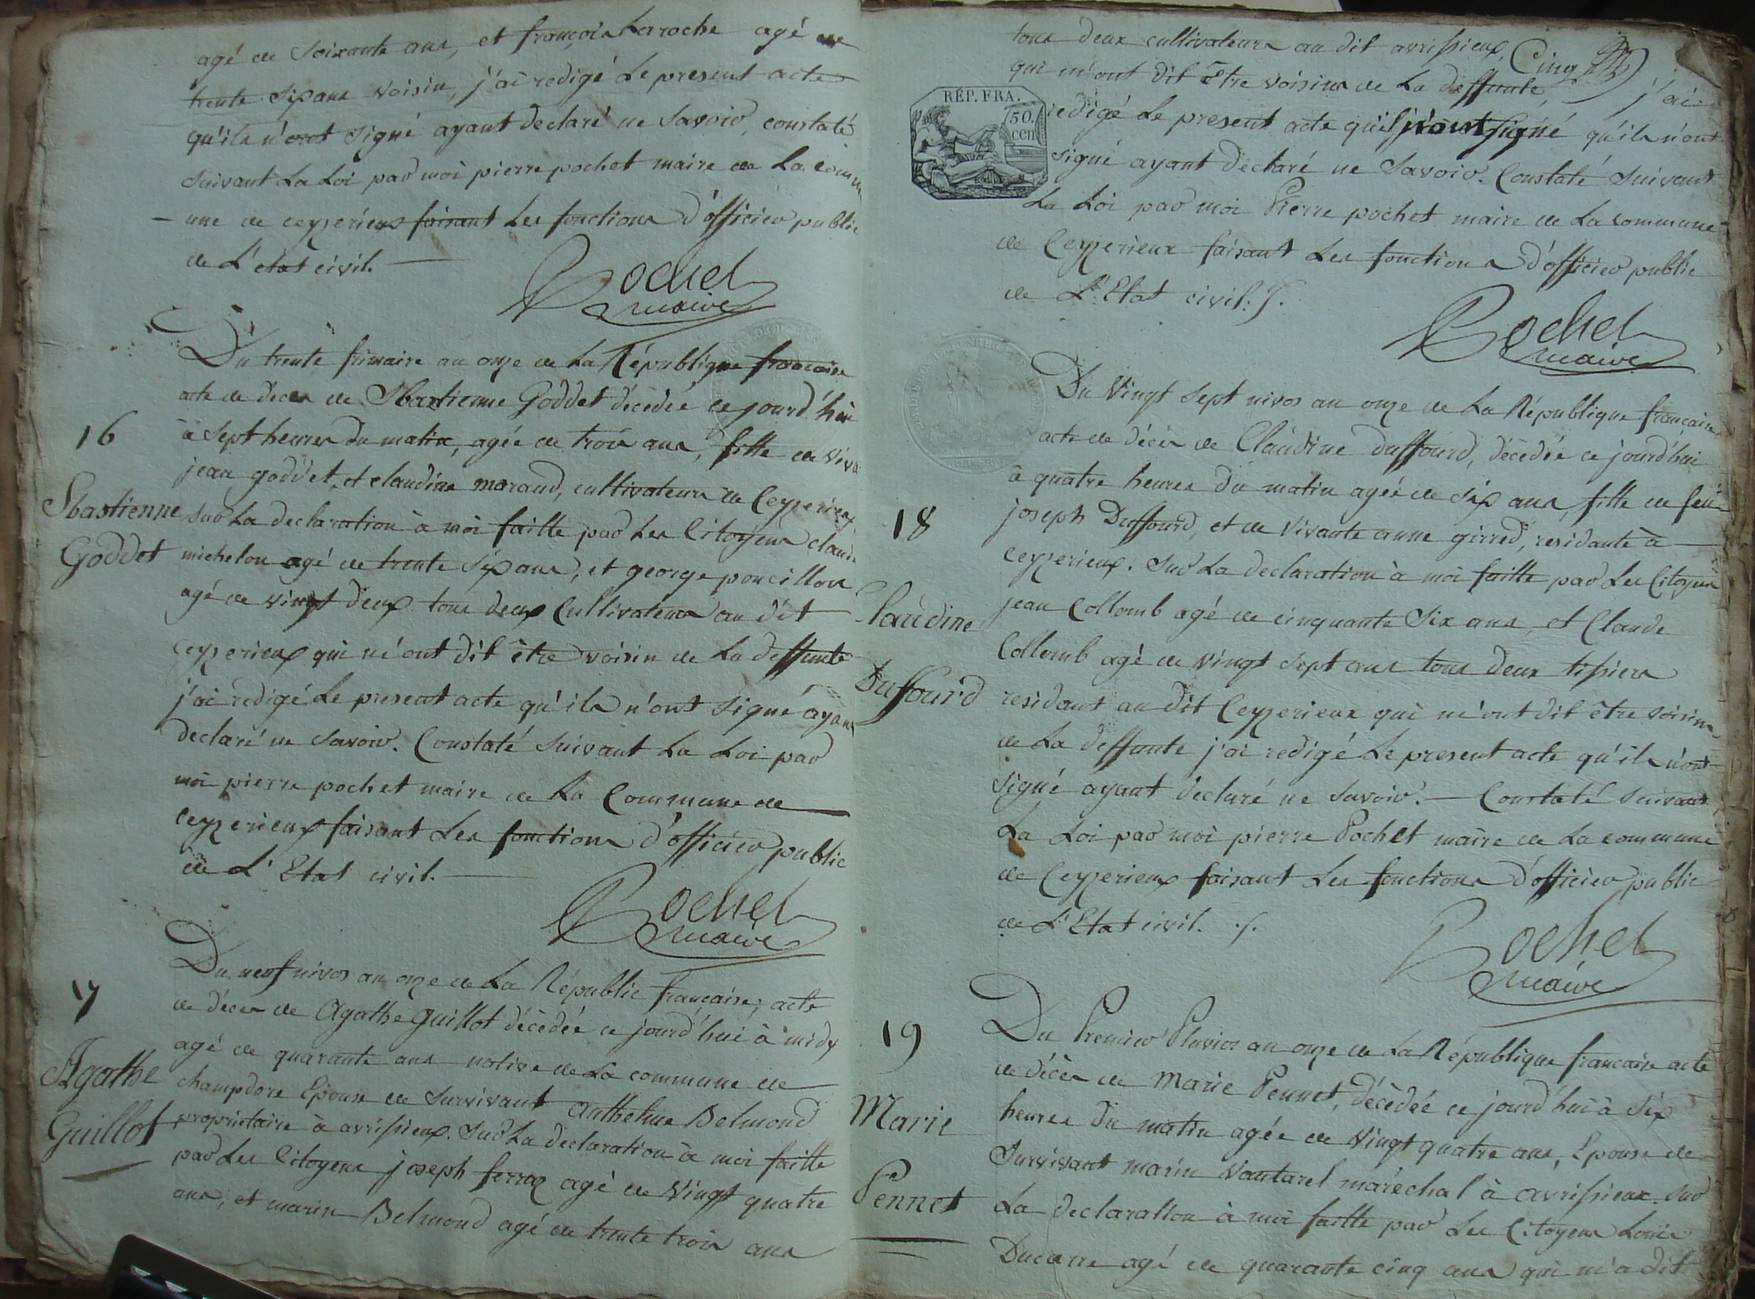 agé de soixante ans, et françois Laroche agé de
trente six ans voisin, j'ai redigé Le present acte
qu'ils n'ont signé ayant declaré ne Savoir, constaté
suivant La Loi par moi pierre pochet maire de La comm
une de ceyzerieux faisant Les fonctions d'officier public
de L'etat civil.
Pochet
maire
16
Sbastienne
Goddet
Du trente frimaire an onze de La République francaise
acte de décès de Sbastienne Goddet décédée ce jourd'hui
à sept heures du matin, agée de trois ans, fille de viv
jean goddet, et claudine maraud, cultivateurs de Ceyzerieux
sur La declaration à moi faitte par Les Citoyens claude
michelon agé de trente six ans, et george poncillon
agé de vingt deux tous deux Cultivateurs au dit
ceyzerieux qui m'ont dit être voisin de La deffunte
j'ai redigé Le present acte qu'ils n'ont signé ayant
declaré ne Savoir. Constaté suivant La Loi par
moi pierre pochet maire de La Commune de
ceyzerieux faisant Les fonctions d'officier public
de L'Etat civil.
Pochet
maire
17
Agathe
Guillot
Du neuf nivos an onze de La Républic francaise; acte
de décès de Agathe Guillot décédée ce jourd'hui à midy
agé de quarante ans native de La commune de
champdore Epouse de survivant Anthelme Belmond
proprietaire à avrissieux. Sur La declaration à moi faitte
par Les Citoyens joseph ferraz agé de Vingt quatre
ans, et marin Belmond agé de trente trois ans
tous deux cultivateurs au dit avrissieux, Cinq
qui m'ont dit être voisins de La deffunte, j'ai
RÉP. FRA.
50.
cen
redigé Le present acte qu'ils n'ont signé qu'ils n'ont
signé ayant declaré ne Savoir. Constaté suivant
La Loi par moi Pierre pochet maire de La commune
de Ceyzerieux faisant Les fonctions d'officier public
de L'Etat civil.
Pochet
maire
18
Claudine
Duffourd
Du Vingt sept nivos an onze de La République francaise
acte de décès de Claudine Duffourd, décédée ce jourd'hui
à quatre heures du matin agée de six ans, fille de feu
joseph Duffourd, et de vivante anne girred, residante à
ceyzerieux. Sur La declaration à moi faitte par Les Citoyens
jean Collomb agé de cinquante Six ans, et Claude
Collomb agé de vingt sept ans tous deux tissiers
residant au dit Ceyzerieux qui m'ont dit être voisins
de La deffunte j'ai redigé Le present acte qu'ils n'ont
signé ayant declaré ne savoir. Constaté suivant
La Loi par moi pierre Pochet maire de La commune
de Ceyzerieux faisant Les fonctions d'officier public
de L'Etat civil.
Pochet
maire
19
Marie
Pennet
Du Premier Pluvios an onze de La République francaise acte
de décès de Marie Pennet, décédée ce jourd'hui à six
heures du matin agée de Vingt quatre ans, Epouse de
Survivant marin Vantarel maréchal à avrissieux. Sur
La declaration à moi faitte par Les Citoyens Louis
Ducarre agé de quarante cinq ans qui m'a dit